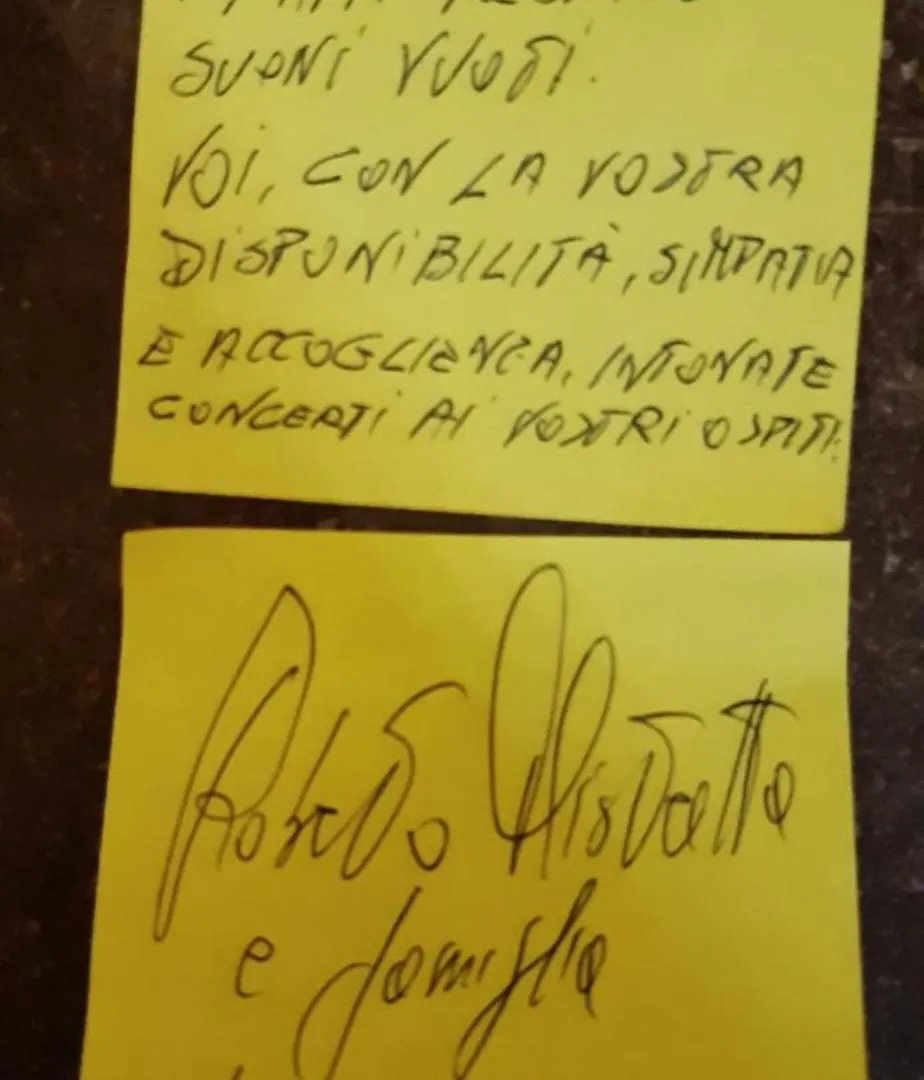 SUONI VUOTI.
VOI, CON LA VOSTRA
DISPONIBILITÀ, SIMPATIA
E ACCOGLIENZA, INTONATE
CONCERTI AI VOSTRI OSPITI!
Roberto
e famiglia